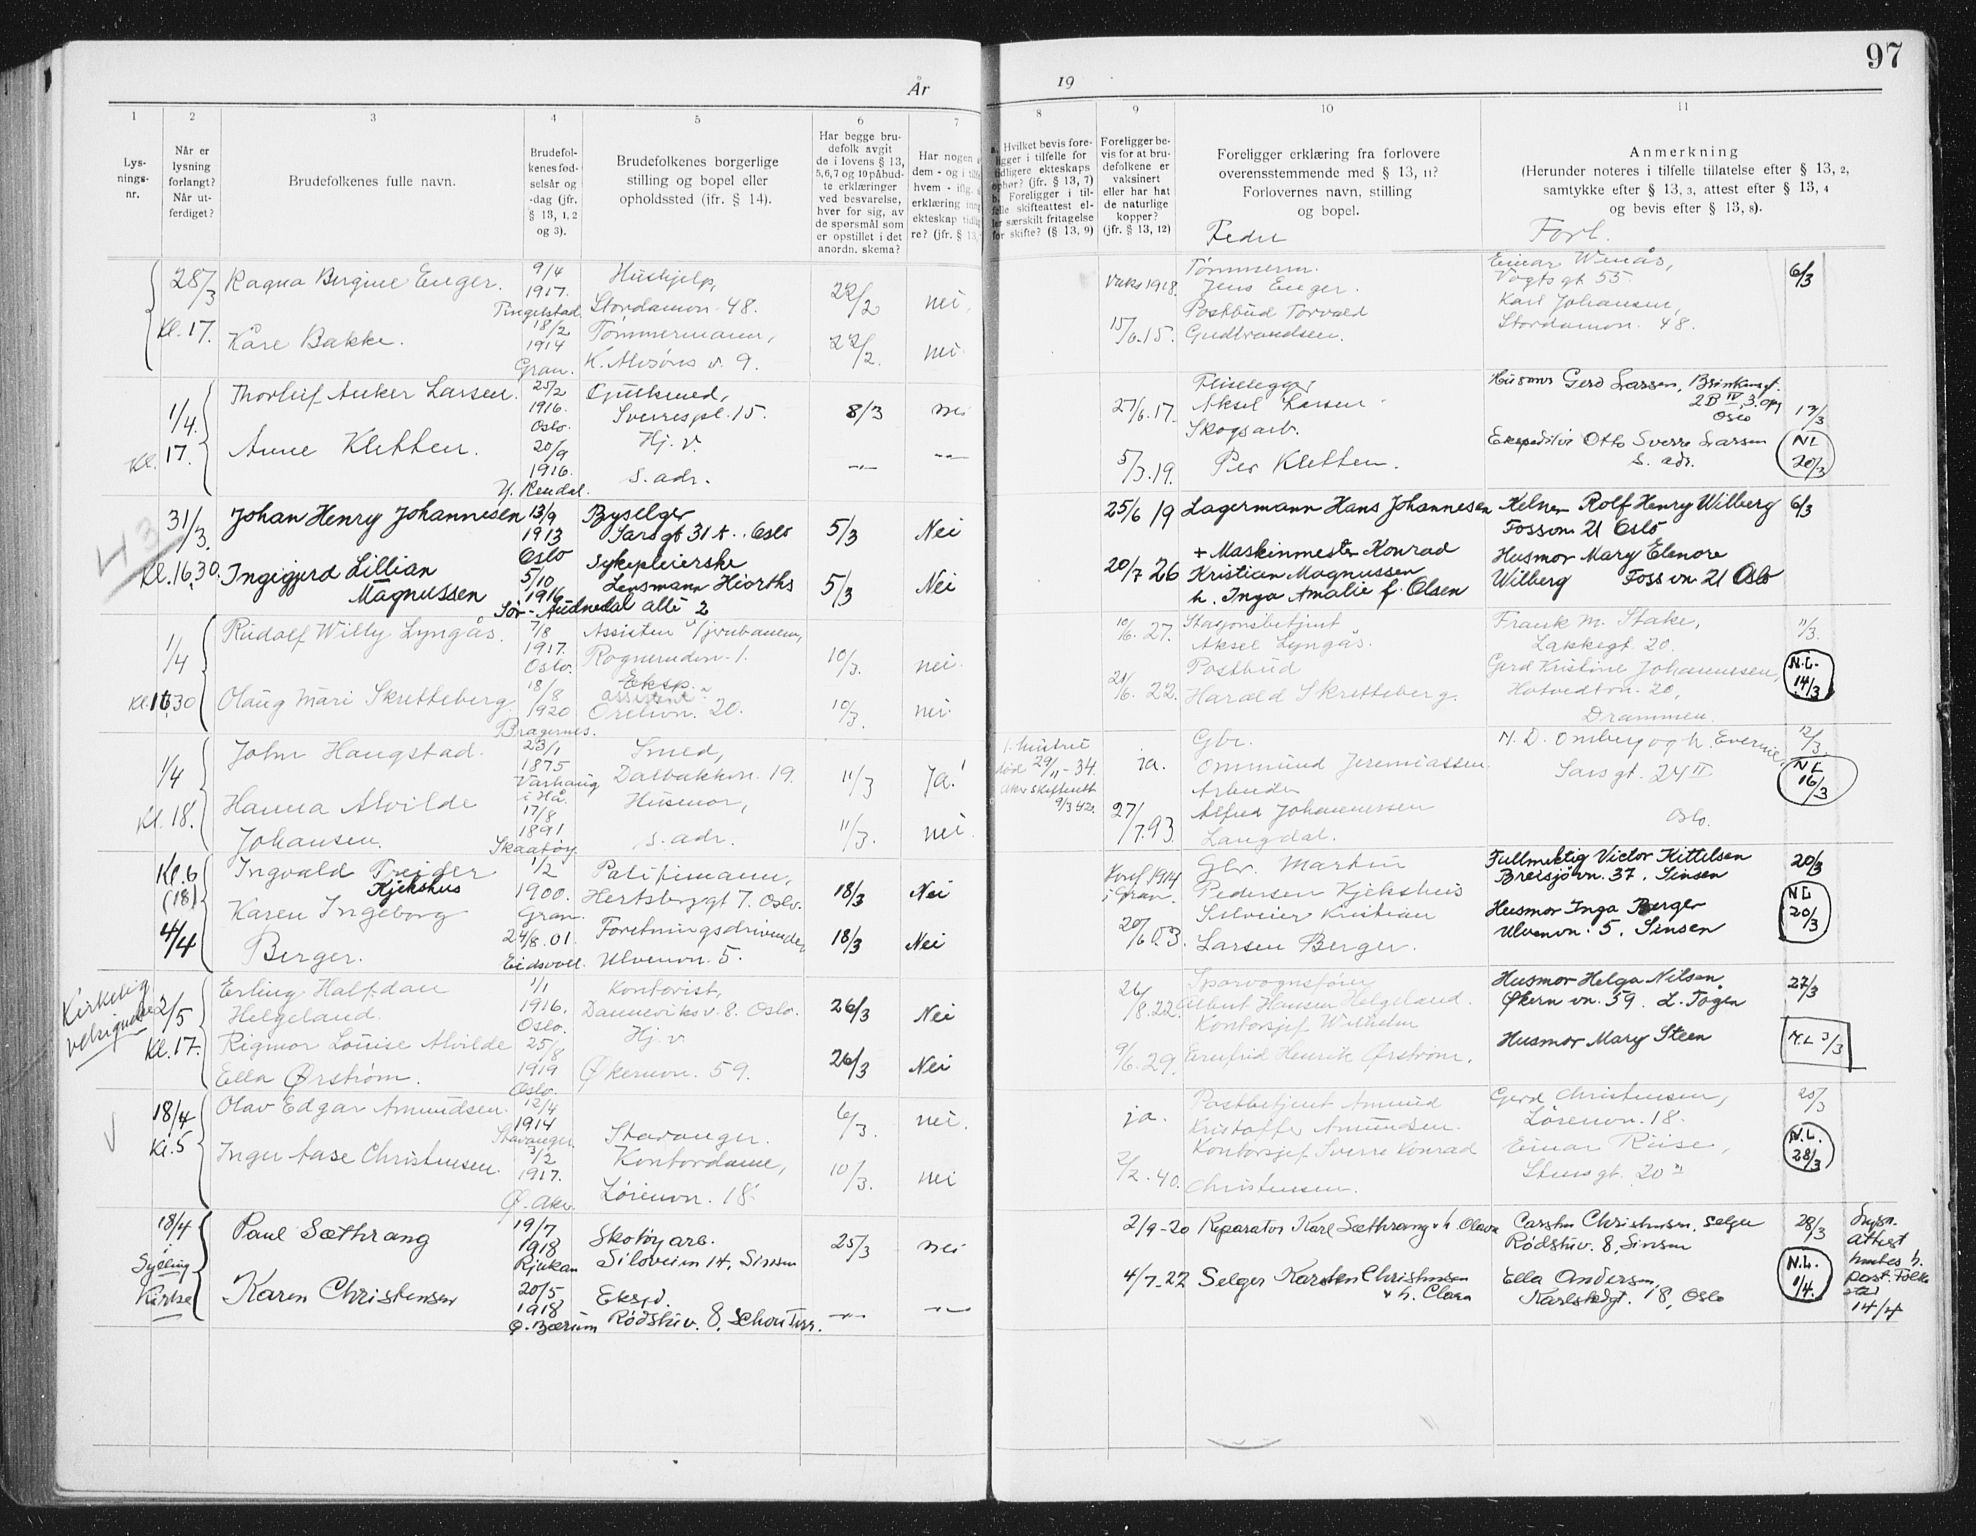 97
År
19
1
2
3
4
5
6
7
8
9
10
11
Lys-
nings-
nr.
Når er
lysning
forlangt?
Når ut-
ferdiget?
Brudefolkenes fulle navn.
Brudefol-
kenes fød-
selsår og
-dag (jfr.
§ 13, 1, 2
og 3).
Brudefolkenes borgerlige
stilling og bopel eller
opholdssted (jfr. § 14).
Har begge bru-
defolk avgit
de i lovens § 13,
5,6,7 og 10 påbud-
te erklæringer
ved besvarelse,
hver for sig, av
de spørsmål som
er opstillet i det
anordn. skema?
Har nogen
dem - og i
hvem - iflg.
erklæring
ekteskap
re? (jfr. § 13,
Hvilket bevis fore-
ligger i tilfelle for
tidligere ekteskaps
ophør? (jfr. § 13, 7)
Foreligger i til-
felle skifteattest el-
ler særskilt fritagelse
for skifte? (§ 13, 9)
Foreligger be-
vis for at bru-
defolkene er
vaksinert
eller har hat
de naturlige
kopper?
(jfr. § 13, 12)
Foreligger erklæring fra forlovere
overensstemmende med § 13, 11?
Forlovernes navn, stilling
og bopel.
Fedre
Anmerkning
(Herunder noteres i tilfelle tillatelse efter § 13, 2,
samtykke efter § 13, 3, attest efter § 13, 4
og bevis efter § 13, 8).
Forl.
28/3
Kl. 17.
Ragna Bergine Enger.
9/4
1917.
Tingelstad
Hushjelp,
Stordamvn. 48.
22/2
nei.
Vaks 1918.
Tømmerm.
Jens Enger.
Einar Wenås,
Vogtsgt 55.
6/3
Kåre Bakke.
18/2
1914
Gran.
Tømmermann,
v. 9.
22/2
nei
15/6.15.
Postbud Torvald
Gudbrandsen.
Karl Johansen,
Stordamvn. 48.
1/4.
Kl. 17.
Thorleif Anker Larsen.
25/2
1916.
Oslo.
Gjutlsmed,
Sverrespl. 15.
8/3
nei
27/6.17.
Fliselegger
Aksel Larsen.
Husmor Gerd Larsen,
2B IV, 3. opg
Oslo
Anne Kletten.
20/9
1916.
Y. Rendal.
Hj. v.
s. adr.
-"-
-"-
5/3.19.
Skogsarb.
Per Kletten.
Ekspeditør Otto Sverre Larsen
s. adr.
NL
20/3
43
31/3.
Kl. 16.30.
Johan Henry Johannesen
13/9
1913
Oslo
Byselger
Sarsgt 31 A.. Oslo
5/3
Nei
25/6 19
Lagermann Hans Johannesen
Kelner Rolf Henry Wilberg
Fossvn 21 Oslo
6/3
Ingigjerd Lillian
Magnussen
5/10
1916
Sør-Audnedal
Sykepleierske
Lensmann Hiorths
allè 2
5/3
Nei
20/7 26
+ Maskinmester Konrad
Kristian Magnussen
h. Inga Amalie f. Olsen
Husmor Mary Elenore
Wilberg Fossvn 21 Oslo
1/4
Kl. 16.30
Rudolf Willy Lyngås.
7/8
1917.
Oslo.
Assistent v/jernbanen,
Rognerudvn. 1.
10/3.
nei.
10/6. 27.
Stasjonsbetjent
Aksel Lyngås.
Frank M. Stake,
Lakkegt 20.
11/3.
Olaug Mari Skretteberg
18/8
1920
Bragernes.
Eksp.
assistent
Orelivn. 20.
10/3.
nei.
20/6. 22.
Postbud
Harald Skretteberg.
Gerd Kristine Johannesen,
Hotvedtvn. 20,
Drammen.
N.L.
14/3
1/4
Kl. 18.
John Haugstad.
23/1
1875
Varhaug
i Hå.
Smed,
Dalbakkvn. 19.
11/3
Ja!
1. hustru
død 29/11-34.
Aker skifterett
9/3 42.
ja.
Gbr.
Ommund Jeremiassen
M. D. Omberg og h.
Sarsgt. 24 II
Oslo.
12/3.
NL
16/3
Hanna Alvilde
Johansen.
17/8
1891.
Skaatøy.
Husmor,
s. adr.
11/3.
nei
27/7.93
Arbeider
Alfred Johannessen
Langdal.
Kl. 6
(18)
4/4
Ingvald Freider
Kjekshus
1/2
1900.
Gran.
Politimann,
Hertsbergsgt 7. Oslo.
18/3
Nei
1914
i Gran.
Gbr. Martin
Pedersen Kjekshus
Fullmektig Victor Kittelsen
Breisjøvn. 37. Sinsen
20/3
Karen Ingeborg
Berger.
24/8.01.
Eidsvoll.
Foretningsdrivende,
Ulvenvn. 5.
18/3
Nei
20/6 03.
Kristian
Larsen Berger.
Husmor Inga Berger
Ulvenvn. 5. Sinsen
NL
20/3
Kirkelig
velsignelse
2/5
Kl. 17.
Erling Halfdan
Helgeland.
1/1
1916.
Oslo.
Kontorist,
Danneviksv. 8. Oslo.
26/3
Nei
26/8.22.
Sporvognsfører
Albert Hansen Helgeland.
Husmor Helga Nilsen.
Økern vn. 59. L. Tøyen
27/3
Rigmor Louise Alvilde
Ella Ørstrøm.
25/8
1919
Oslo.
Hj. v
Økernvn. 59.
26/3
Nei
9/6. 29.
Kontorsjef Wilhelm
Ernfrid Henrik Ørstrøm.
Husmor Mary Steen
N.L 3/3
18/4
Kl. 5
Olav Edgar Amundsen.
12/4
1914
Stavanger
Stavanger.
6/3.
nei.
ja.
Postbetjent Amund
Kristoffer Amundsen.
Gerd Christensen,
Lørenvn. 18.
25/3
Inger Aase Christensen.
3/2
1917.
Ø. Aker.
Kontordame,
Lørenvn. 18.
10/3.
nei
2/2. 40.
Kontorsjef Sverre Konrad
Christensen.
Einar Riise,
Stensgt. 20
N.L.
28/3
18/4
Sylling
Kirke
Paul Sæthrang
19/7
1918
Rjukan
Skotøyarb.
Siloveien 14, Sinsen
25/3
nei
2/9-20
Reparatør Karl Sæthrang & h. Olava
Carsten Christensen, selger
Rødstuv. 8, Sinsen
28/3
Lysn.
attest
h.
14/4
Karen Christensen
20/5
1918
Ø. Bærum
Eksp.
Rødstuv. 8,
-"-
-"-
4/7-22
Selger Karsten Christensen
& h. Clara
Ella Andersen,
18, Oslo
N.L.
1/4.